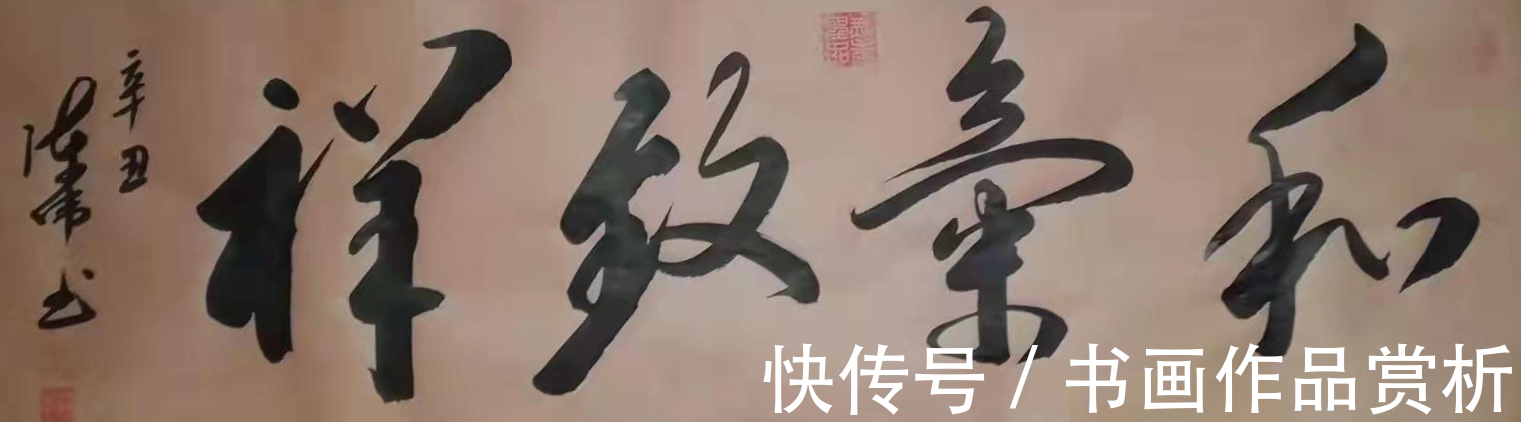 和氣致祥
辛丑
陈
书
快传号 / 书画作品赏析